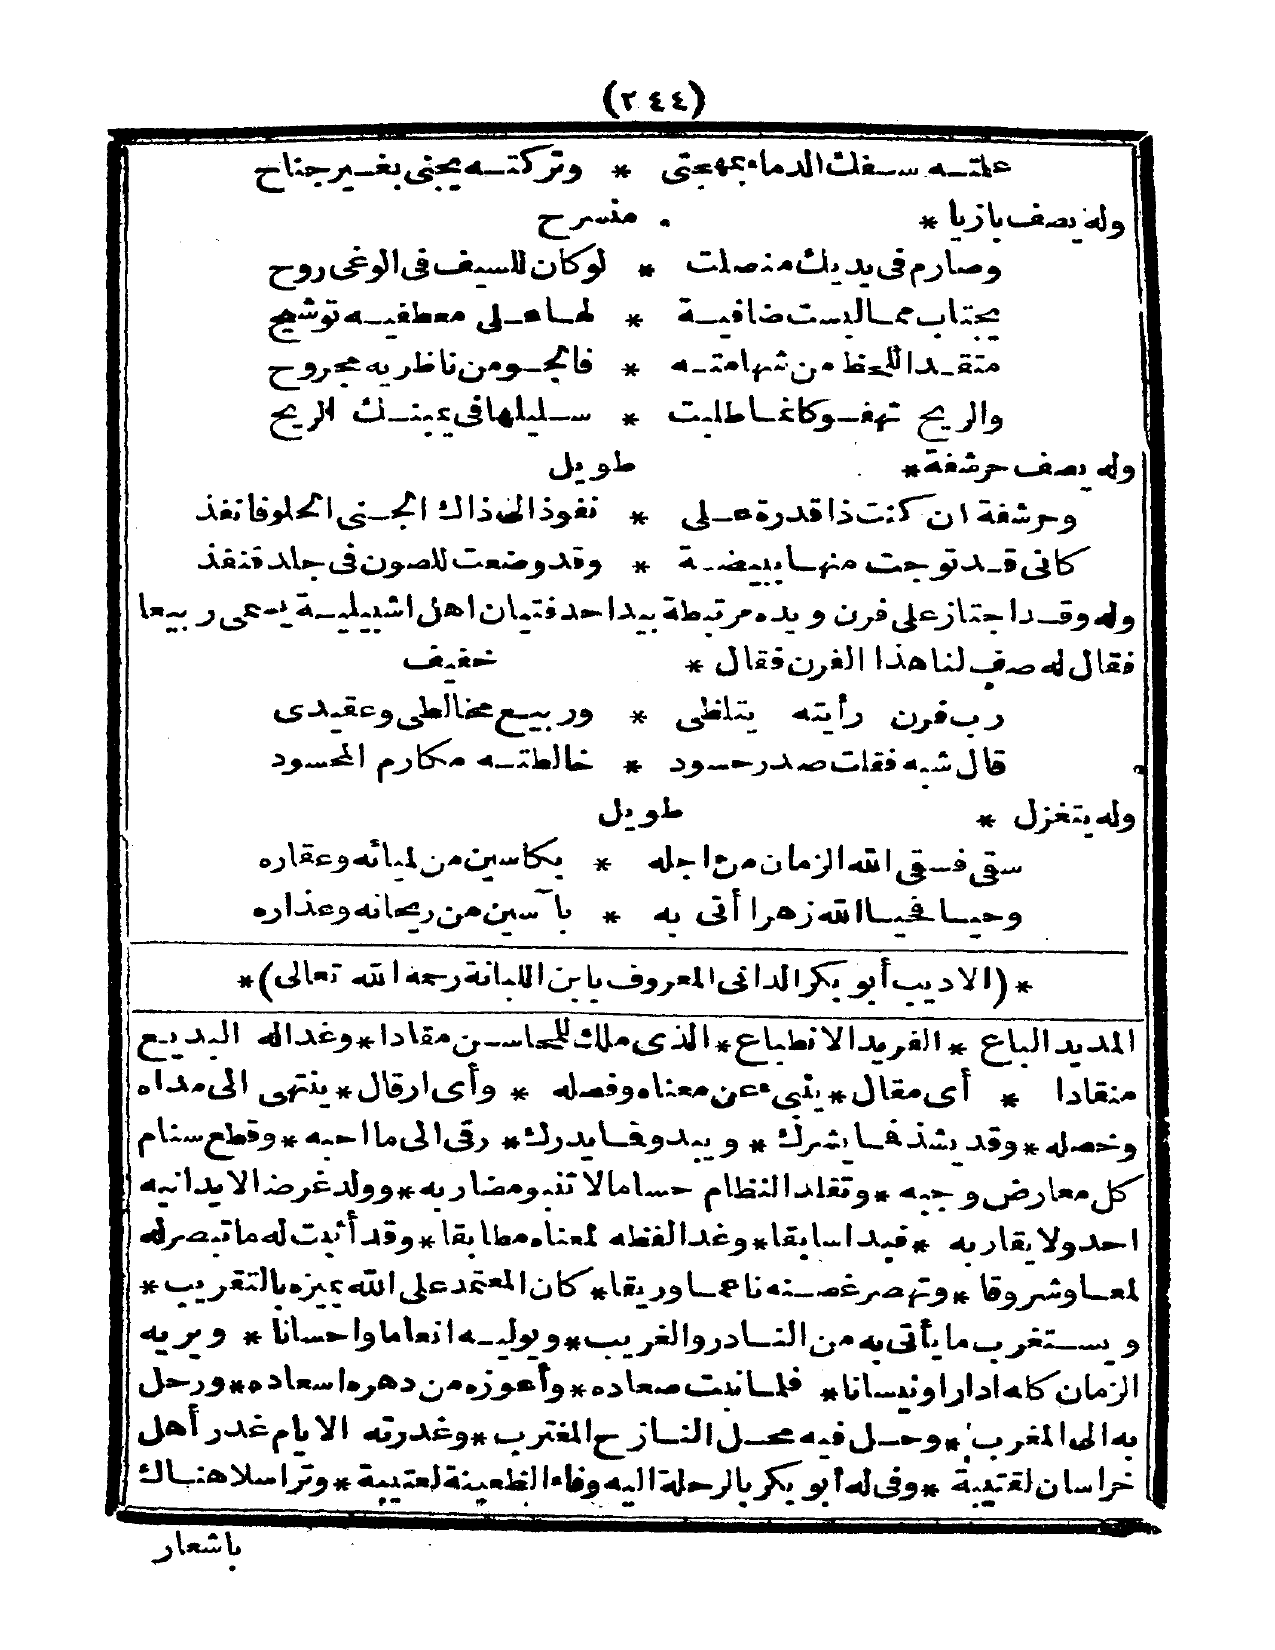 (٢٤٤)
علمته سفك الدماء بمهجتى * وتركته يجنى بغير جناح
وله يصف بازيا * منسرح
وصارم فى يديك منصلت * لو كان للسيف فى الوغى روح
يجتاب مما لبست ضافية * لها على معطفيه توشيح
متقد اللحظ من شهامته * فالجو من ناظريه مجروح
والريح تهفو كأنما طلبت * سليلها فى يمينك الريح
وله يصف حرشفة * طويل
وحرشفة ان كنت ذا قدرة على * نفوذ الى ذاك الجنى الحلو فانفذ
كانى قد توجت منها ببيضة * وقد وضعت للصون فى جلد قنفذ
وله وقد اجتاز على فرن ويده مرتبطة بيد احد فتيان اهل اشبيلية يدعى ربيعا
فقال له صف لنا هذا الفرن فقال * خفيف
رب فرن رأيته يتلظى * وربيع مخالطى وعقيدى
قال شبه فقلت صدر حسود * خالطته مكارم المحسود
وله يتغزل * طويل
سقى فسقى الله الزمان من اجله * بكاسين من لميائه وعقاره
وحيا فحيا الله زهرا أتى به * بآسين من ريحانه وعذاره
*(الاديب أبو بكر الدانى المعروف بابن اللبانة رحمه الله تعالى)*
المديد الباع * الفريد الانطباع * الذى ملك للمحاسن مقادا * وغدا له البديع
منقادا * أى مقال * ينبىء عن معناه وفصله * وأى ارقال * ينتهى الى مداه
وخصله * وقد يشذ فما يشرك * ويبدو فما يدرك * رقى الى ما احبه * وقطع سنام
كل معارض وجبه * وتقلد النظام حساما لا تنبو مضاربه * وولد غرضا لا يدانيه
احد ولا يقاربه * فبدا سابقا * وغدا لفظه لمعناه مطابقا * وقد أثبت له ما تبصر له
لمعا وشروقا * وتهصر غصنه ناعما وريقا * كان المعتمد على الله يميزه بالتقريب *
ويستغرب ما يأتى به من النادر والغريب * ويوليه انعاما واحسانا * ويريه
الزمان كله اذارا ونيسانا * فلما نبت صعاده * وأعوزه من دهره اسعاده * ورحل
به الى المغرب * وحل فيه محل النازح المغترب * وغدرته الايام غدر أهل
خراسان لقتيبة * وفى له أبو بكر بالرحلة اليه وفاء الظعينة لعتيبة * وتراسلا هناك
باشعار